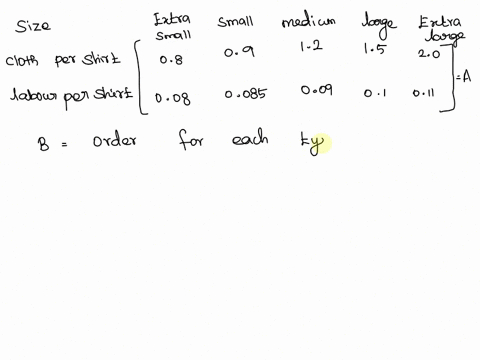 Size Extra small small medium large Extra large
cloth per shirt 0.8 0.9 1.2 1.5 2.0
labour per shirt 0.08 0.085 0.09 0.1 0.11 = A
B = order for each ty